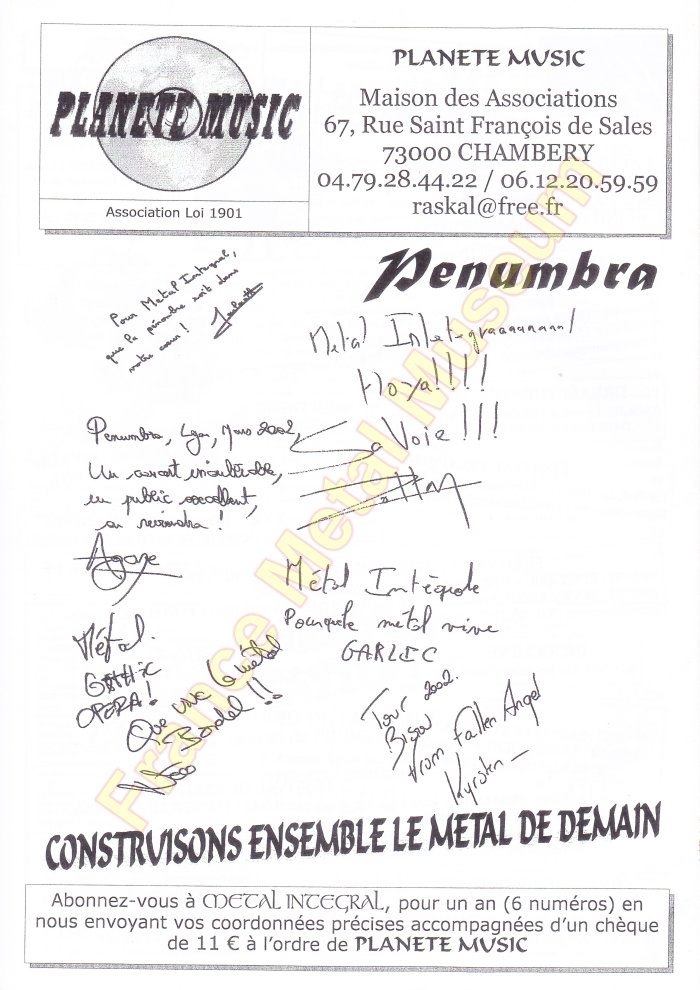 PLANETE MUSIC
Association Loi 1901
PLANETE MUSIC
Maison des Associations
67, Rue Saint François de Sales
73000 CHAMBERY
04.79.28.44.22 / 06.12.20.59.59
raskal@free.fr
Penumbra
Pour Metal Integral,
que la pénombre soit dans
votre cœur !
Metal Intetegraaaaaaaal
Hoya!!!!
Voie !!!
Penumbra, Lyon, Mars 2002,
Un avant
un public excellent,
on reviendra !
Agone
Métal Intégrale
Pourquele metal vive
GARLIC
Métal.
GOTHIC
OPERA!
Que vive le métal
Bordel !!
Tour 2002.
Bisou
from Fallen Angel
Kyrsten
France Metal Museum
CONSTRUISONS ENSEMBLE LE METAL DE DEMAIN
Abonnez-vous à METAL INTEGRAL, pour un an (6 numéros) en
nous envoyant vos coordonnées précises accompagnées d'un chèque
de 11 € à l'ordre de PLANETE MUSIC